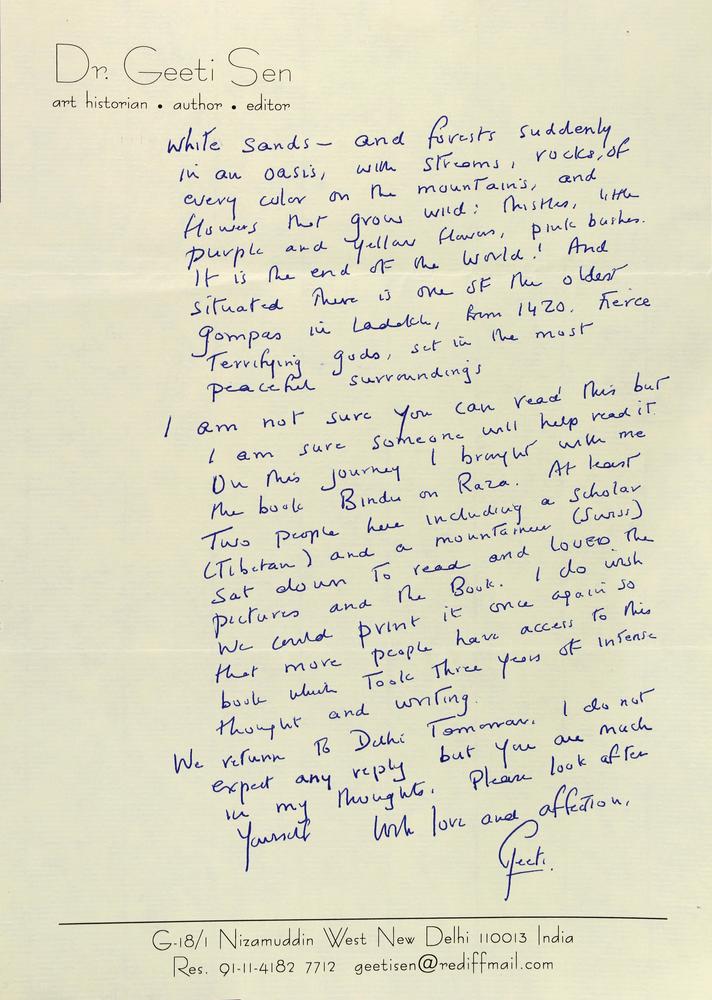 Dr. Geeti Sen
art historian • author • editor
white sands – and forests suddenly
in an oasis, with streams, rocks, of
every color on the mountains, and
flowers that grow wild: thistles, little
purple and yellow flowers, pink bushes.
It is the end of the World! And
situated there is one of the oldest
gompas in Ladakh, from 1420. Fierce
Terrifying gods, set in the most
peaceful surroundings
I am not sure you can read this but
I am sure someone will help read it
On this journey I brought with me
the book Bindu on Raza. At least
Two people here including a scholar
(Tibetan) and a mountaineer (Swiss)
sat down to read and LOVED the
pictures and the Book. I do wish
We could print it once again so
that more people have access to this
book which Took Three years of intense
thought and writing.
We return to Delhi Tomorrow. I do not
expect any reply but you are much
in my thoughts. Please look after
Yourself With love and affection,
Geeti.
G-18/1 Nizamuddin West New Delhi 110013 India
Res. 91-11-4182 7712 geetisen@rediffmail.com